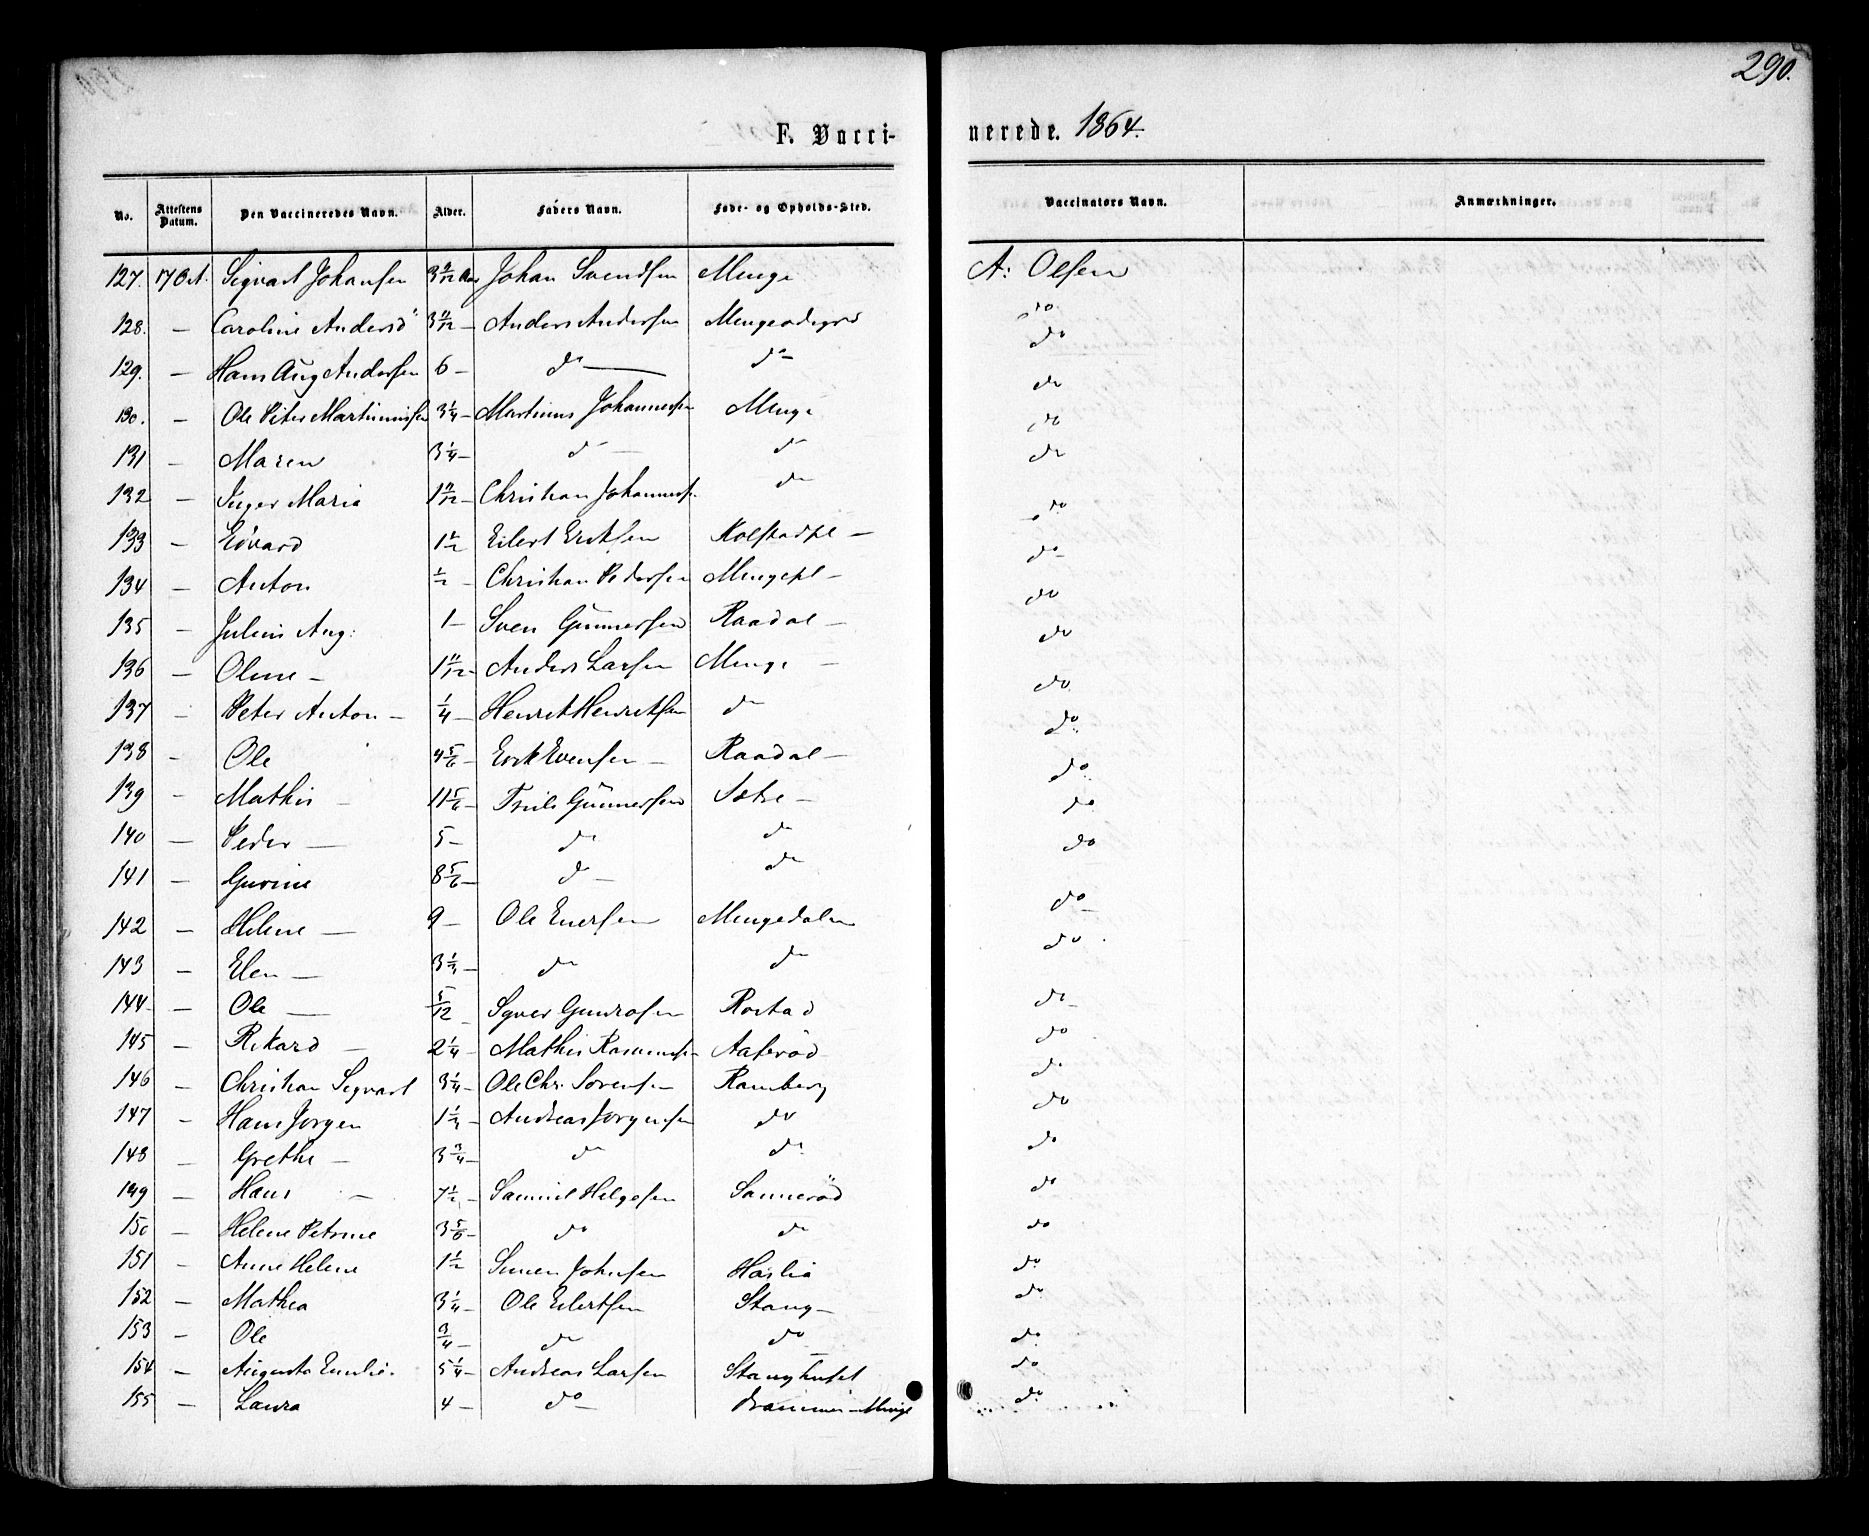 290.
F. Vacci-nerede. 1864.
No. Attestens Datum. Den Vaccineredes Navn. Alder. Faders Navn. Føde- og Opholds-Sted. Vaccinators Navn. Anmærkninger.
127. 17 Oct. Sigvart Johansen 3 Aar Johan Svendsen Menge A: Olsen
128. — Caroline Andersd 3 11/12 — Anders Andersen do
129. — Hans Aug Andersen 6 — do — do — do
130. — Ole Peter Martinussen 3 1/4 — Martinus Johannesen Menge do
131 — Maren 3 1/4 — do — do do
132 — Inger Maria 1 11/12 — Christian Johannes. do do
133 — Edvard 1 1/2 Eilert Eriksen Kolstadpl — do
134 — Anton 1/2 — Christian Pedersen Mengepl — do
135 — Julius Aug: 1 — Sven Gunnersen Raadal — do
136 — Oline — 1 11/12 — Anders Larsen Menge — do
137 — Peter Anton — 1/4 — Henrik Henriksen do do
138 — Ole 4 5/6 — Erik Evensen — Raadal — do
139 — Mathis — 11 5/6 — Truls Gunnersen Sætre — do
140 — Peder — 5 — do do do
141 — Gurine 8 5/6 — do — do
142 — Helene — 9 — Ole Enersen Mengedalen do
143 — Elen — 3 1/2 — do do do
144 — Ole — 5/12 — Syver Gundrosen Rostad do
145 — Rikard — 2 1/4 — Mathis Rasmuss. Aaserød do
146 — Christian Sigvart 3 1/4 — Ole Chr. Sørensen Ramberg do
147 — Hans Jørgen 1 1/2 — Andreas Jørgensen do do
148 — Grethe — 3 3/4 — do do do
149 — Hans — 7 1/2 — Samuel Helgesen Sannerød do
150 — Helene Petrine 3 5/6 — do do do
151 — Anne Helene 1 1/2 Simen Johnsen Haslia do
152 — Mathea 3 1/4 — Ole Eilertsen Stang — do
153 — Ole 3/4 — do do do
154 — Augusta Emilie. 5 1/4 — Andreas Larsen Stanghuset do
155 — Laura 4 — do — Menge do